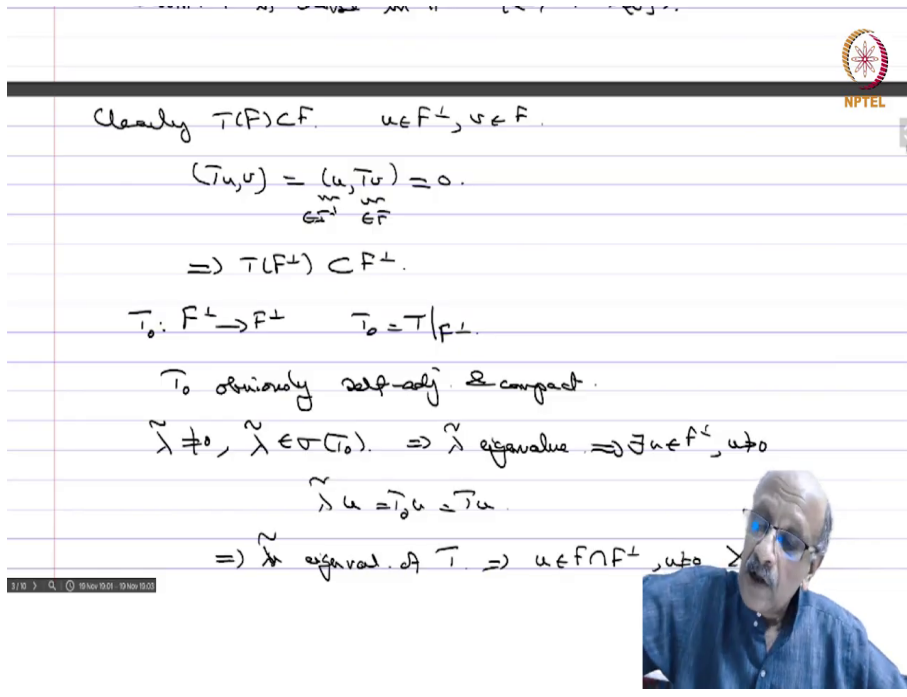 NPTEL
Clearly T(F)⊂F. u∈F⊥, v∈F.
(Tu,v) = (u,Tv) = 0.
∈F⊥ ∈F
⇒ T(F⊥) ⊂ F⊥.
T₀: F⊥ → F⊥ T₀ = T|F⊥.
T₀ obviously self-adj. & compact.
λ̃ ≠ 0, λ̃ ∈ σ(T₀). ⇒ λ̃ eigenvalue ⇒ ∃ u∈F⊥, u≠0
λ̃ u = T₀u = Tu.
⇒ λ̃ eigenval. of T. ⇒ u∈F∩F⊥, u≠0
3/10 19 Nov 19:01 - 19 Nov 19:03